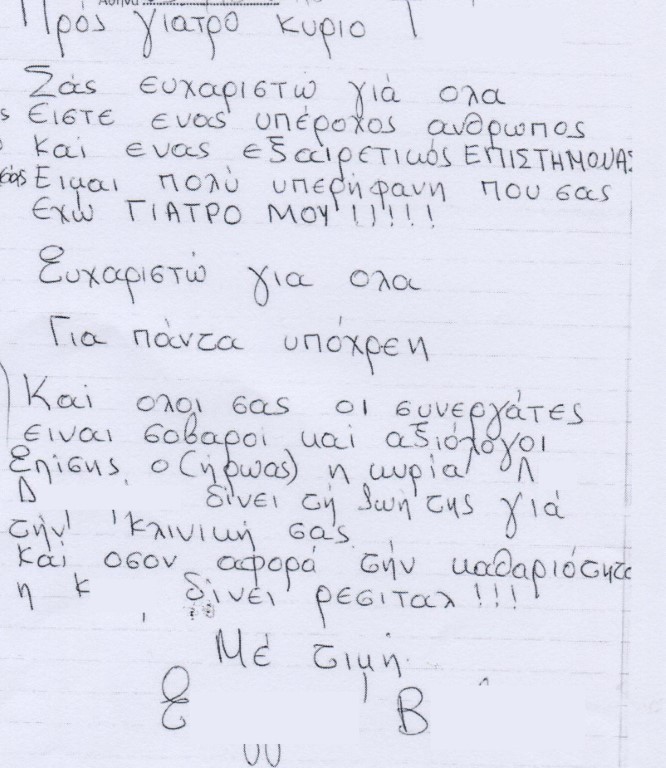 Αθήνα
Πρός γιατρο κυριο Τ
Σάς ευχαριστώ γιά ολα
Ειστε ενας υπέροχος ανθρωπος
και ενας εξαιρετικός ΕΠΙΣΤΗΜΟΝΑΣ
Ειμαι πολύ υπερήφανη που σας
εχω ΓΙΑΤΡΟ ΜΟΥ!!!!!
Ευχαριστώ για ολα
Για πάντα υπόχρεη
Και ολοι σας οι συνεργάτες
ειναι σοβαροί και αξιόλογοι
Επίσης ο (ήρωας) η κυρία Λ
Δ δίνει τή ζωή της γιά
τήν κλινική σας
και οσον αφορά τήν καθαριότητα
η κ δίνει ρεσιταλ!!!
Μέ τιμή
Ε Β